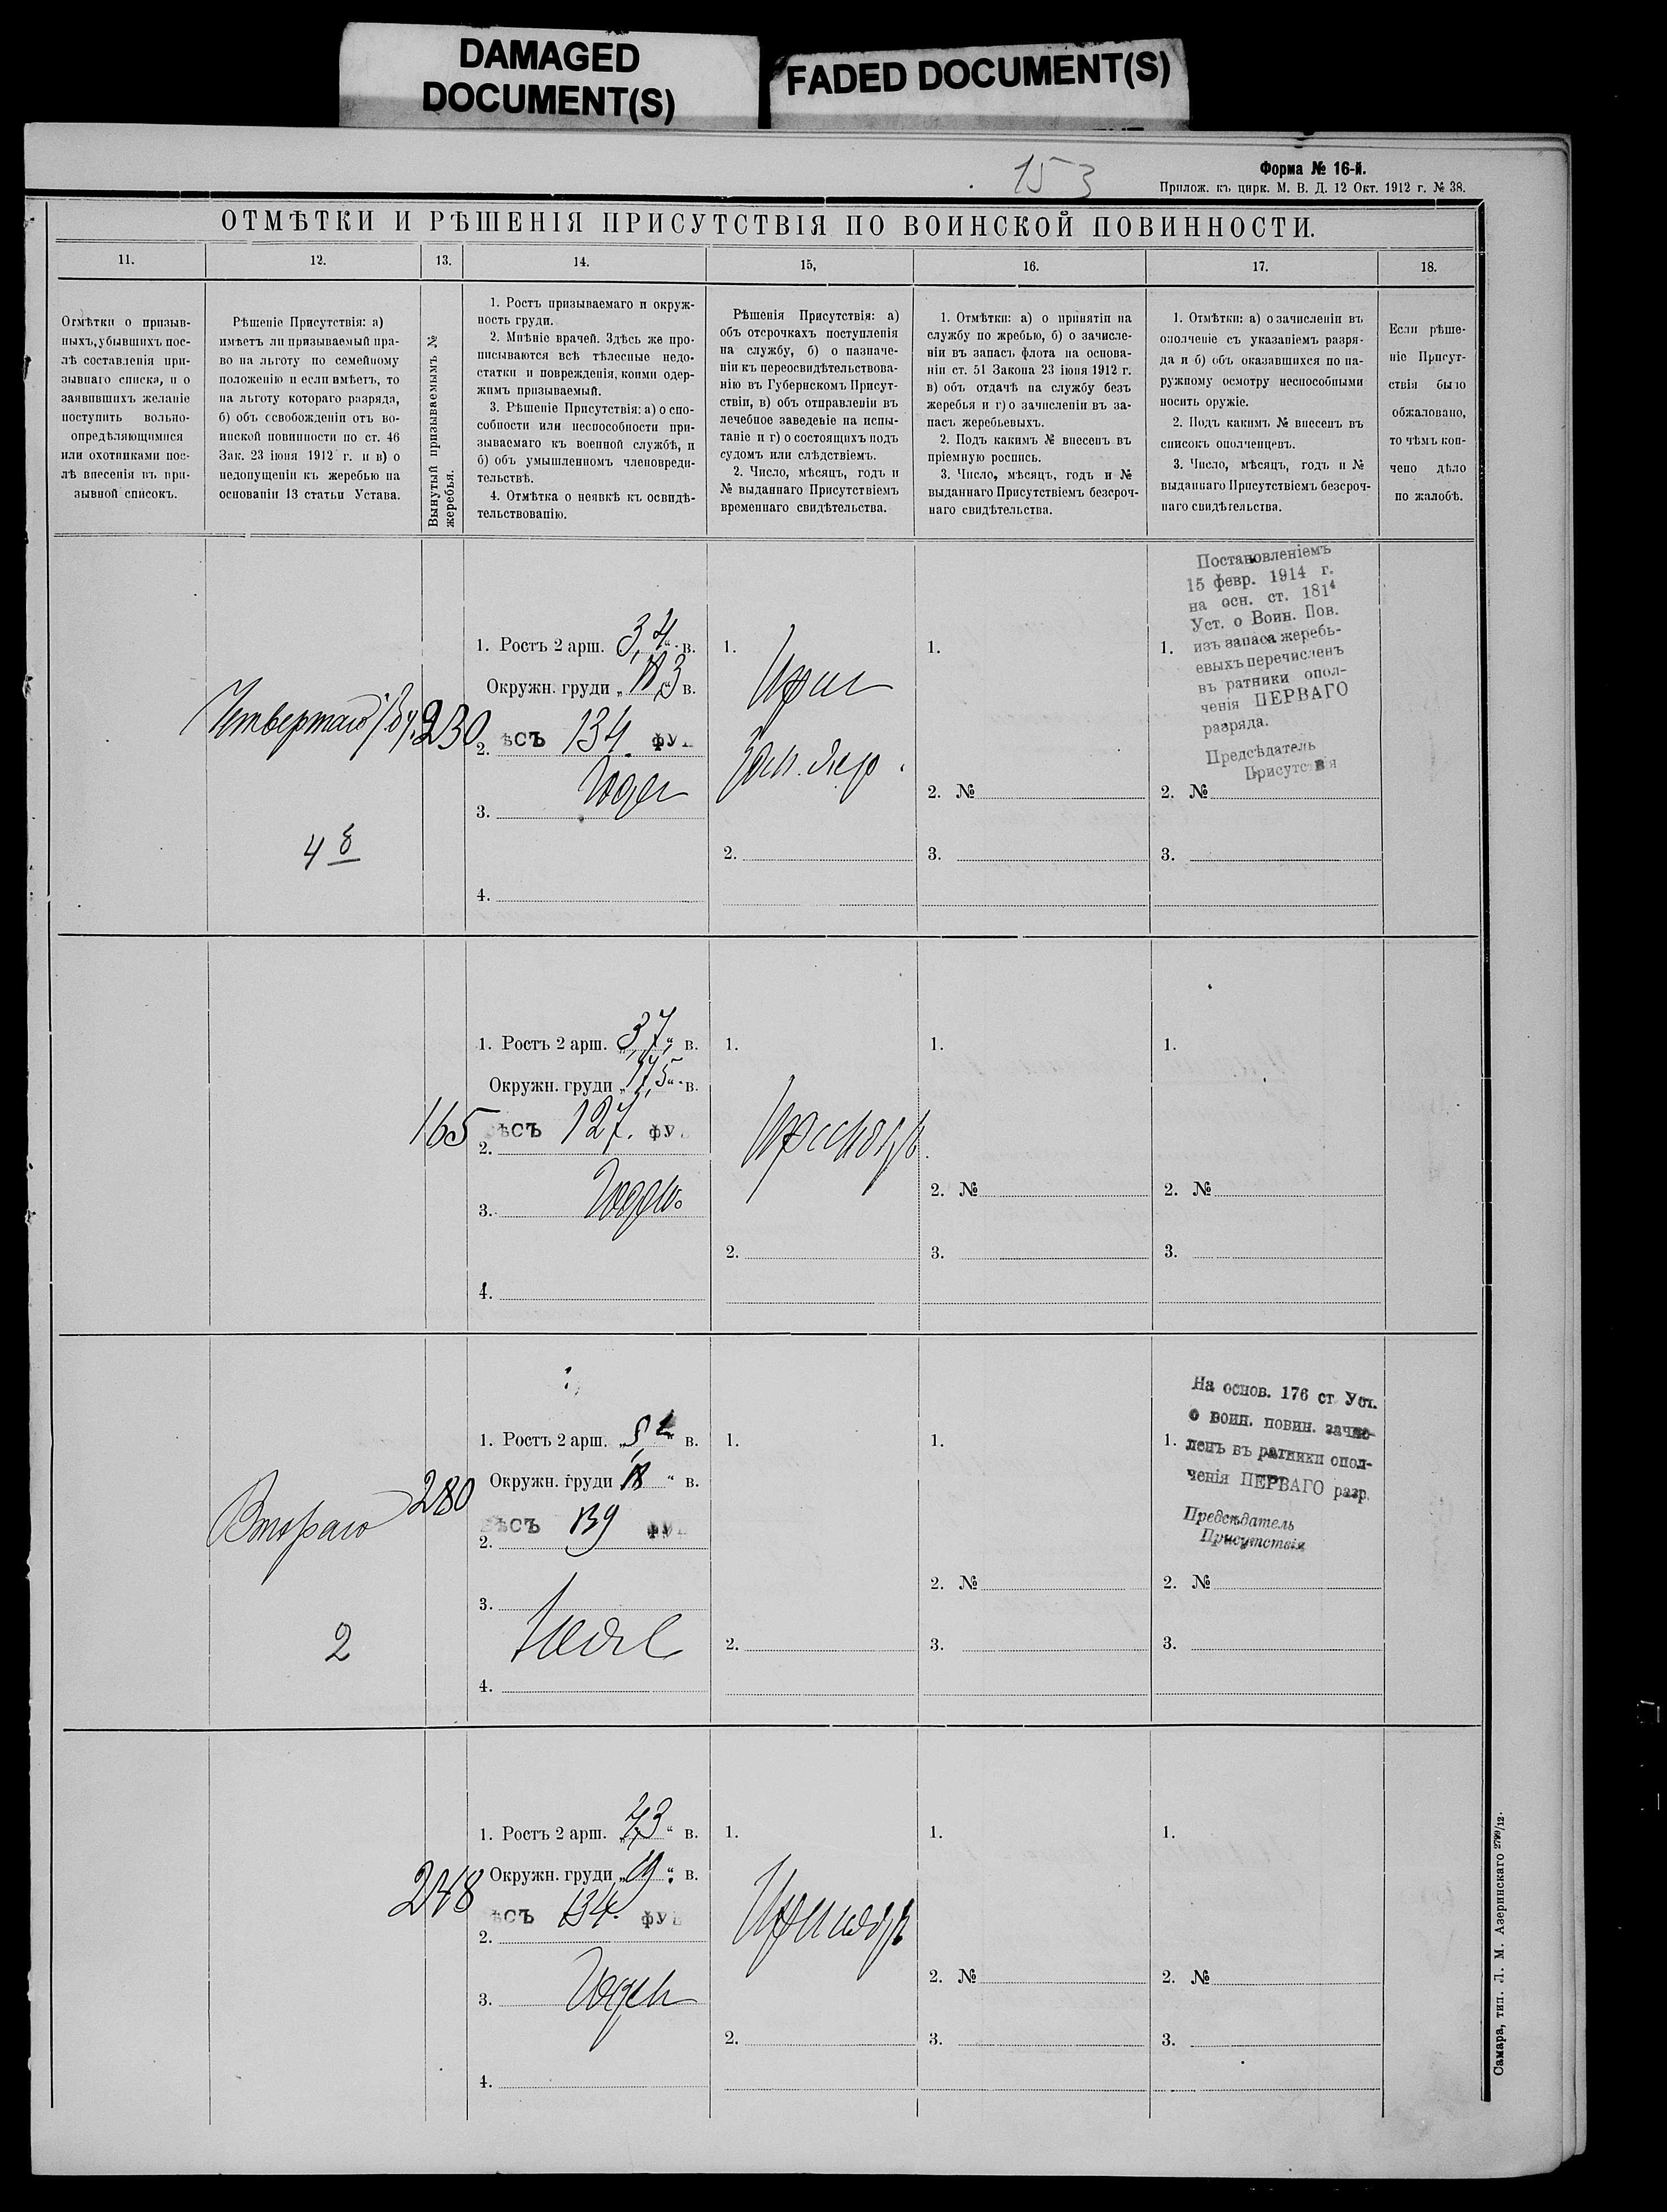 DAMAGED
DOCUMENT(S)
FADED DOCUMENT(S)
153
Форма № 16-й.
Прилож. къ цирк. М. В. Д. 12 Окт. 1912 г. № 38.
ОТМѢТКИ И РѢШЕНІЯ ПРИСУТСТВІЯ ПО ВОИНСКОЙ ПОВИННОСТИ.
11.
12.
13.
14.
15,
16.
17.
18.
Отмѣтки о призыв-
ныхъ, убывшихъ пос-
лѣ составленія при-
зывнаго списка, и о
заявившихъ желаніе
поступить вольно-
опредѣляющимися
или охотниками пос-
лѣ внесенія въ при-
зывной списокъ.
Рѣшеніе Присутствія: а)
имѣетъ ли призываемый пра-
во на льготу по семейному
положенію и если имѣетъ, то
на льготу котораго разряда,
б) объ освобожденіи отъ во-
инской повинности по ст. 46
Зак. 23 іюня 1912 г. и в) о
недопущеніи къ жеребью на
основаніи 13 статьи Устава.
Вынутый призываемымъ №
жеребья.
1. Ростъ призываемаго и окруж-
ность груди.
2. Мнѣніе врачей. Здѣсь же про-
писываются всѣ тѣлесные недо-
статки и поврежденія, коими одер-
жимъ призываемый.
3. Рѣшеніе Присутствія: а) о спо-
собности или неспособности при-
зываемаго къ военной службѣ, и
б) объ умышленномъ членовреди-
тельствѣ.
4. Отмѣтка о неявкѣ къ освидѣ-
тельствованію.
Рѣшенія Присутствія: а)
объ отсрочкахъ поступленія
на службу, б) о назначе-
ніи къ переосвидѣтельствова-
нію въ Губернскомъ Присут-
ствіи, в) объ отправленіи въ
лечебное заведеніе на испы-
таніе и г) о состоящихъ подъ
судомъ или слѣдствіемъ.
2. Число, мѣсяцъ, годъ и
№ выданнаго Присутствіемъ
временнаго свидѣтельства.
1. Отмѣтки: а) о принятіи на
службу по жребью, б) о зачисле-
ніи въ запасъ флота на основа-
ніи ст. 51 Закона 23 іюня 1912 г.
в) объ отдачѣ на службу безъ
жеребья и г) о зачисленіи въ за-
пасъ жеребьевыхъ.
2. Подъ какимъ № внесенъ въ
пріемную роспись.
3. Число, мѣсяцъ, годъ и №
выданнаго Присутствіемъ безсроч-
наго свидѣтельства.
1. Отмѣтки: а) о зачисленіи въ
ополченіе съ указаніемъ разря-
да и б) объ оказавшихся по на-
ружному осмотру неспособными
носить оружіе.
2. Подъ какимъ № внесенъ въ
списокъ ополченцевъ.
3. Число, мѣсяцъ, годъ и №
выданнаго Присутствіемъ безсроч-
наго свидѣтельства.
Если рѣше-
ніе Присут-
ствія было
обжаловано,
то чѣмъ кон-
чено дѣло
по жалобѣ.
Четвертаго
230
4
1. Ростъ 2 арш. 3,4 в.
Окружн. груди в.
2. ѣсъ 134. фу
3. Годен
4.
1.
2.
1.
2. №
3.
Постановленіемъ
15 февр. 1914 г.
на осн. ст. 181⁴
Уст. о Воин. Пов.
1. изъ запаса жеребь-
евыхъ перечисленъ
въ ратники опол-
ченія ПЕРВАГО
разряда.
Предсѣдатель
Присутствія
2. №
3.
165
1. Ростъ 2 арш. 3,7 в.
Окружн. груди в.
2. ѣсъ 127. фу
3.
4.
1.
2.
1.
2. №
3.
1.
2. №
3.
Втораго
280
2
1. Ростъ 2 арш. в.
Окружн. груди в.
2. ѣсъ 139 фу
3.
4.
1.
2.
1.
2. №
3.
На основ. 176 ст Уст.
о воин. повин. зачис-
1. ленъ въ ратники опол-
ченія ПЕРВАГО разр.
Предсѣдатель
Присутствія
2. №
3.
248
1. Ростъ 2 арш. в.
Окружн. груди 19 в.
2. ѣсъ 134. фу
3. Годен
4.
1.
2.
1.
2. №
3.
1.
2. №
3.
Самара, тип. Л. М. Азеринскаго 2799/12.